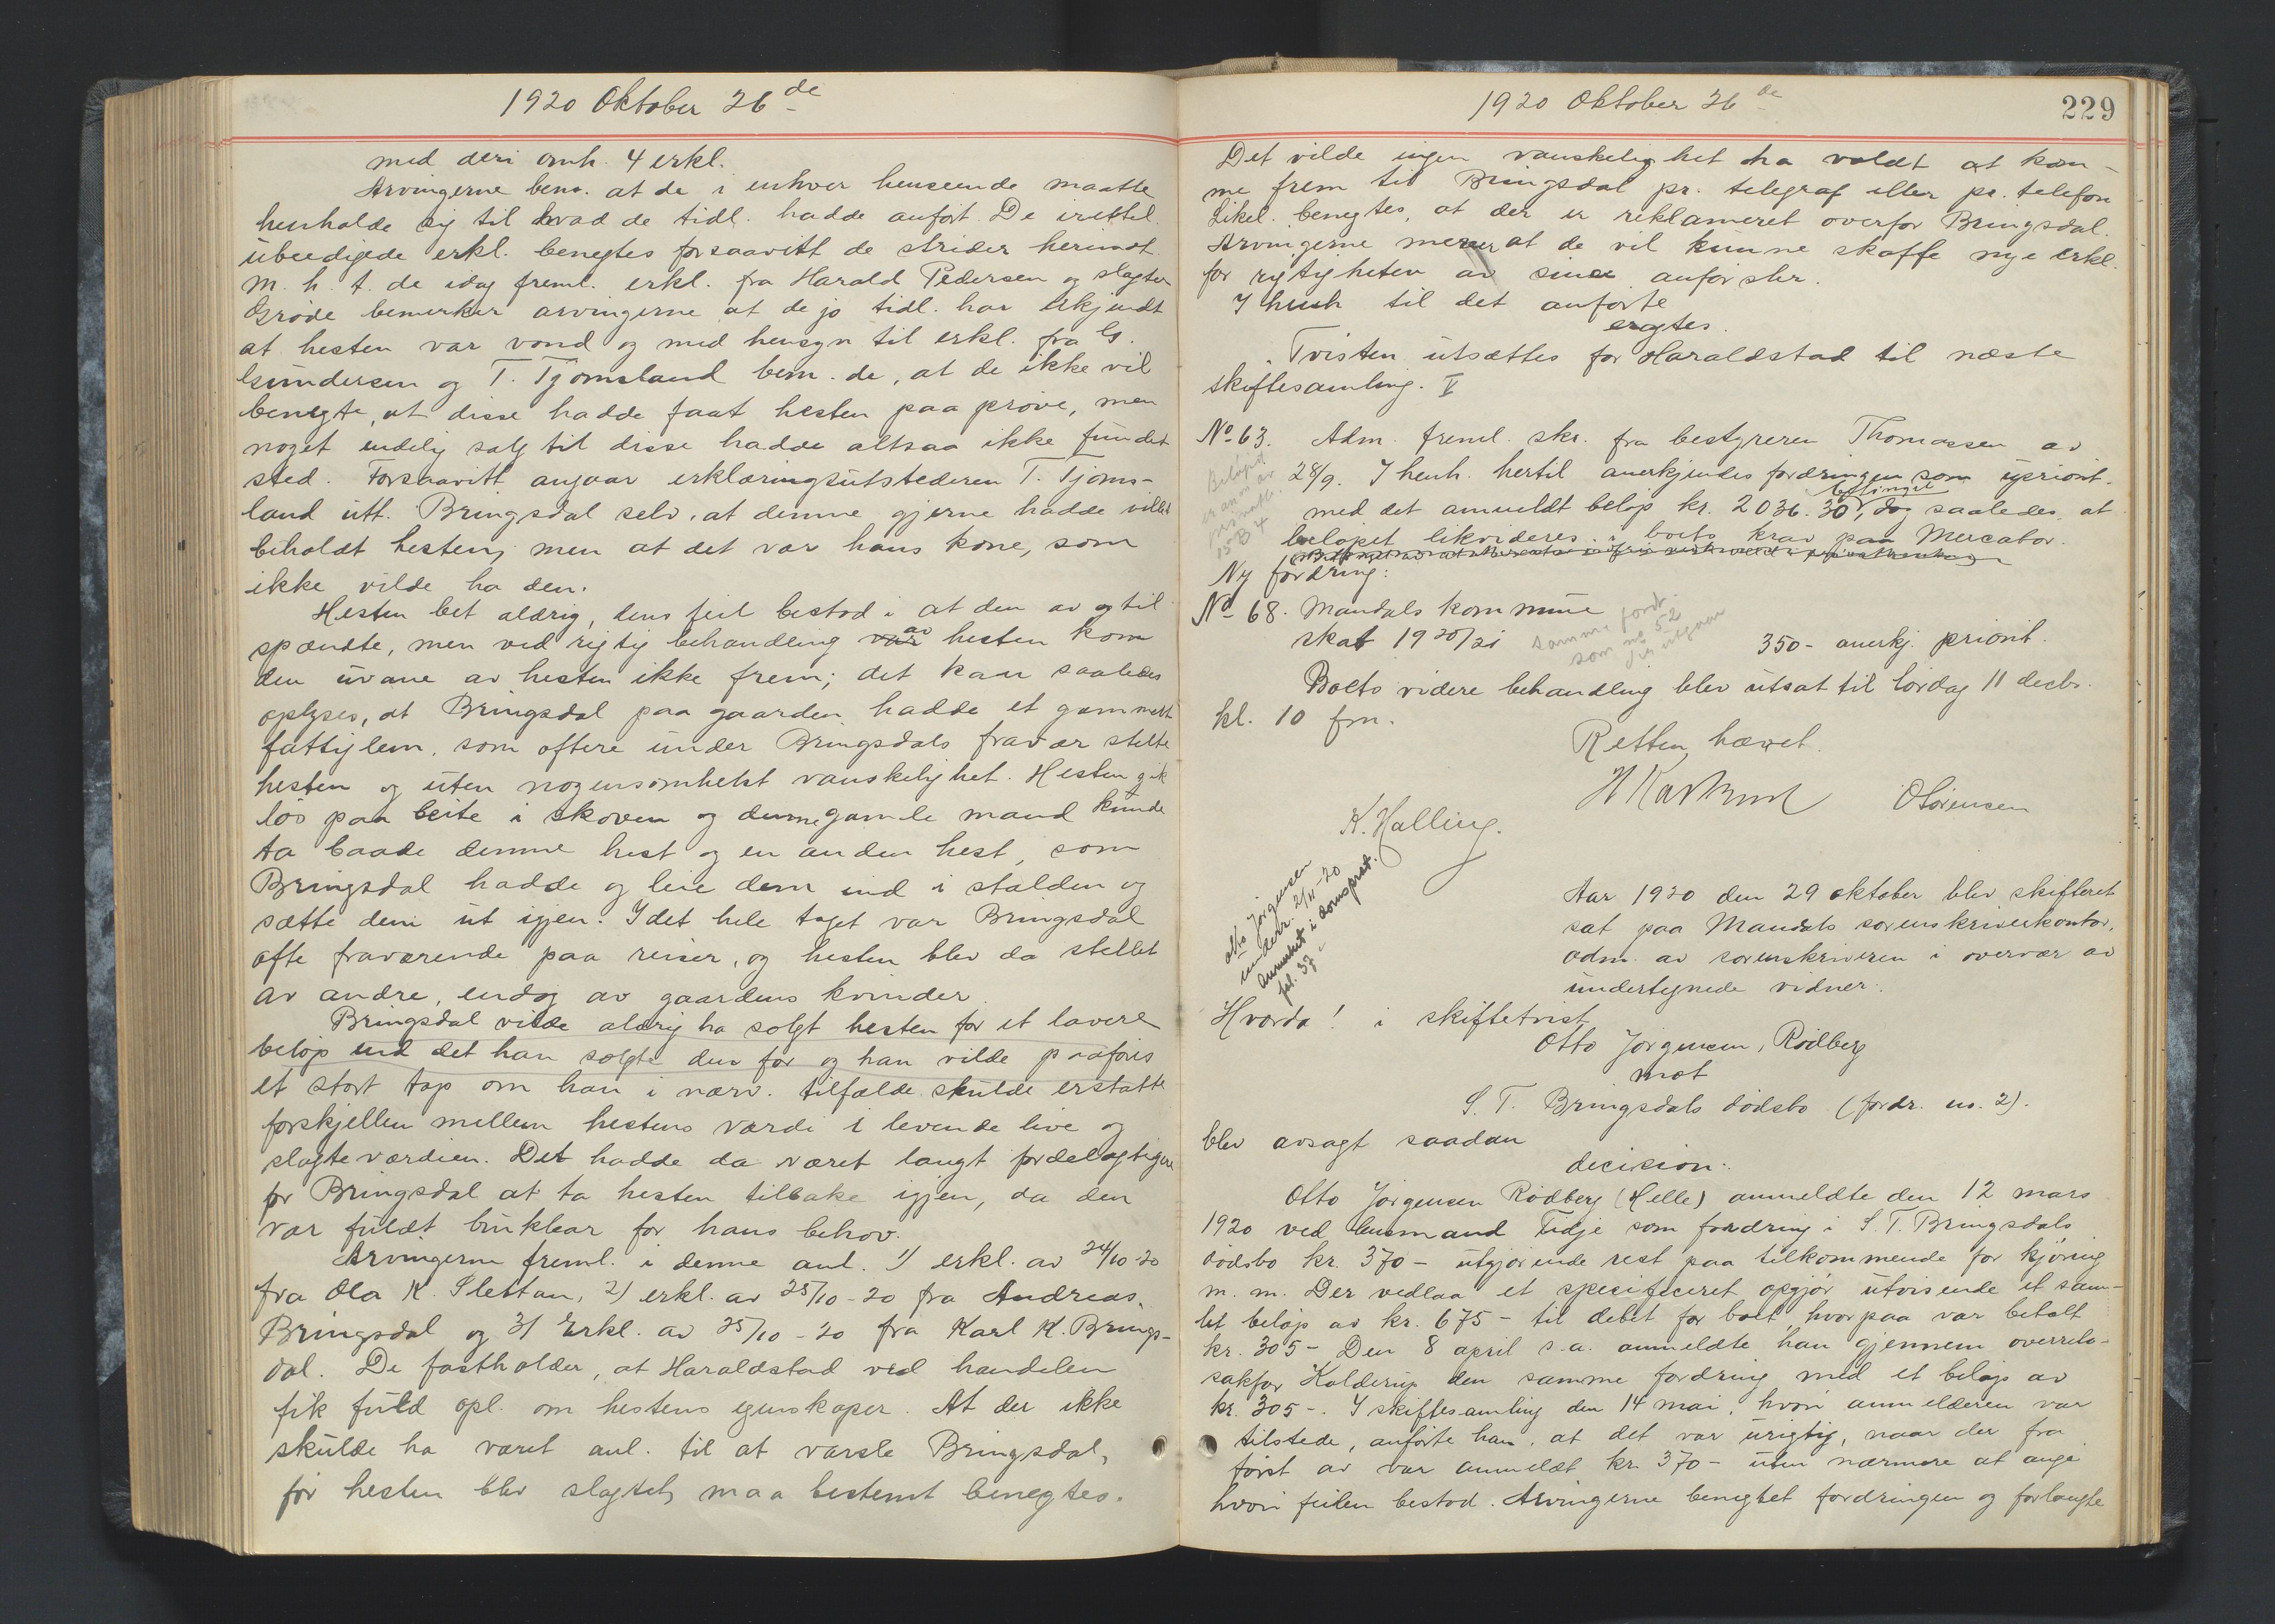 1920 Oktober 26de
med deri omh. 4 erkl.
Arvingerne bem. at de i enhver henseende maatte
henholde sig til hvad de tidl. hadde anført. De irettel.
ubeedigede erkl. benegtes forsaavitt de strider herimot.
M. h. t. de idag freml. erkl. fra Harald Pedersen og slagter
Grøde bemerker arvingerne at de jo tidl. har erkjendt
at hesten var vond og med hensyn til erkl. fra G.
Gundersen og T. Tjomsland bem. de, at de ikke vil
benegte, at disse hadde faat hesten paa prøve, men
noget endelig salg til disse hadde altsaa ikke fundet
sted. Forsaavitt angaar erklæringsutstederen T. Tjoms-
land utt. Bringsdal selv, at denne gjerne hadde villet
beholdt hesten, men at det var hans kone, som
ikke vilde ha den.
Hesten bet aldrig, dens feil bestod i at den av og til
spændte, men ved rigtig behandling var av hesten kom
den uvane av hesten ikke frem; det kan saaledes
oplyses, at Bringsdal paa gaarden hadde et gammelt
fattiglem, som oftere under Bringsdals fravær stelte
hesten og uten nogensomhelst vanskelighet. Hesten gik
løs paa beite i skoven og denne gamle mand kunde
ta baade denne hest og en anden hest, som
Bringsdal hadde og leie dem ind i stalden og
sætte dem ut igjen. I det hele taget var Bringsdal
ofte fraværende paa reiser, og hesten blev da stellet
av andre, endog av gaardens kvinder.
Bringsdal vilde aldrig ha solgt hesten for et lavere
beløp end det han solgte den for og han vilde paaføres
et stort tap om han i nærv. tilfælde skulde erstatte
forskjellen mellem hestens værdi i levende live og
slagteværdien. Det hadde da været langt fordelagtigere
for Bringsdal at ta hesten tilbake igjen, da den
var fuldt brukbar for hans behov.
Arvingerne freml. i denne anl. 1) erkl. av 24/10-20
fra Ola K. Slettan, 2) erkl. av 25/10-20 fra Andreas
Bringsdal og 3) Erkl. av 25/10-20 fra Karl K. Brings-
dal. De fastholder, at Haraldstad ved handelen
fik fuld opl. om hestens egenskaper. At der ikke
skulde ha været anl. til at varsle Bringsdal,
før hesten blev slagtet, maa bestemt benegtes.
1920 Oktober 26de
229
Det vilde ingen vanskelighet ha voldt at kom-
me frem til Bringsdal pr. telegraf eller pr. telefon
Likel. benegtes, at der er reklameret overfor Bringsdal.
Arvingerne mener at de vil kunne skaffe nye erkl.
for rigtigheten av sine anførsler.
I henh til det anførte
eragtes.
Tvisten utsættes for Haraldstad til næste
skiftesamling. V
No 63. Adm. freml. skr. fra bestyreren Thomassen av
28/9. I henh. hertil anerkjendes fordringen som uprior.
betinget
med det anmeldt beløp kr. 2036.30, dog saaledes at
beløpet likvideres i boets krav paa Mercator.
Ny fordring:
No 68. Mandals kommune
samme fordr.
som no 52
skat 1920/21 350- anerkj. priorit.
Boets videre behandling blev utsat til lørdag 11 decbr.
kl. 10 fm.
Retten hævet.
K. Halling.
O Sørensen
Otto Jørgensen
underr. 2/11-20
anmerket i domsprot.
fol. 37.
Aar 1920 den 29 oktober blev skifteret
sat paa Mandals sorenskriverkontor,
adm. av sorenskriveren i overvær av
undertegnede vidner.
Hvorda! i skiftetvist
Otto Jørgensen, Rødberg
mot
S. T. Bringsdals dødsbo (fordr. no. 2).
blev avsagt saadan
decision:
Otto Jørgensen Rødberg (Helle) anmeldte den 12 mars
1920 ved lensmand Tidje som fordring i S. T. Bringsdals
dødsbo kr. 370- utgjørende rest paa tilkommende for kjøring
m. m. Der vedlaa et specificeret opgjør utvisende et sam-
let beløp av kr. 675- til debet for boet, hvorpaa var betalt
kr. 305- Den 8 april s. a. anmeldte han gjennem overrets-
sakfør Kolderup den samme fordring med et beløp av
kr. 305-. I skiftesamling den 14 mai, hvori anmelderen var
tilstede, anførte han, at det var urigtig, naar der fra
først av var anmeldt kr 370- uten nærmere at angi
hvori feilen bestod. Arvingerne benegtet fordringen og forlangte